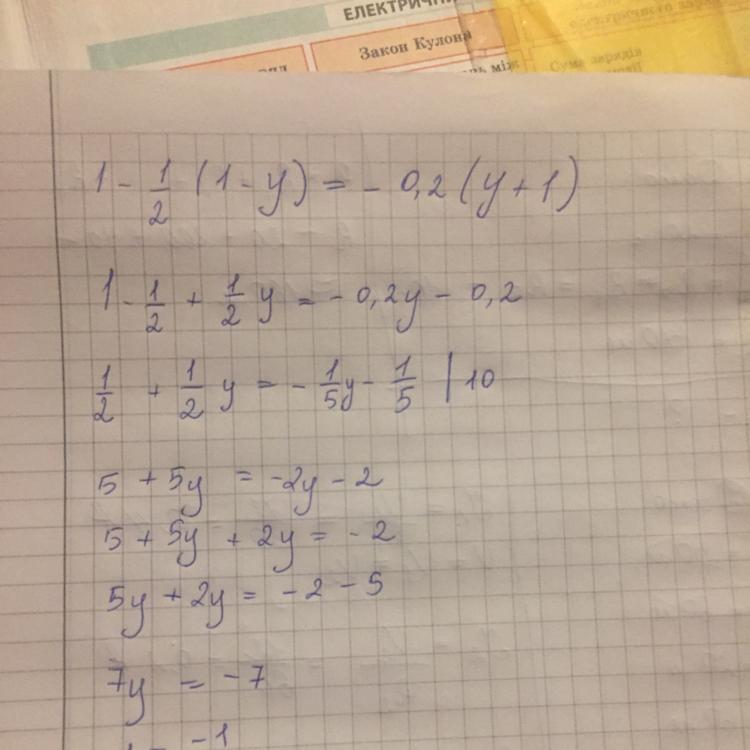 ЕЛЕКТРИЧН
Закон Кулона
електричного заря
Сума зарядів
1 - 1/2 (1 - y) = - 0,2 (y + 1)
1 - 1/2 + 1/2 y = - 0,2y - 0,2
1/2 + 1/2 y = - 1/5 y - 1/5 | 10
5 + 5y = -2y - 2
5 + 5y + 2y = -2
5y + 2y = -2 - 5
7y = -7
-1